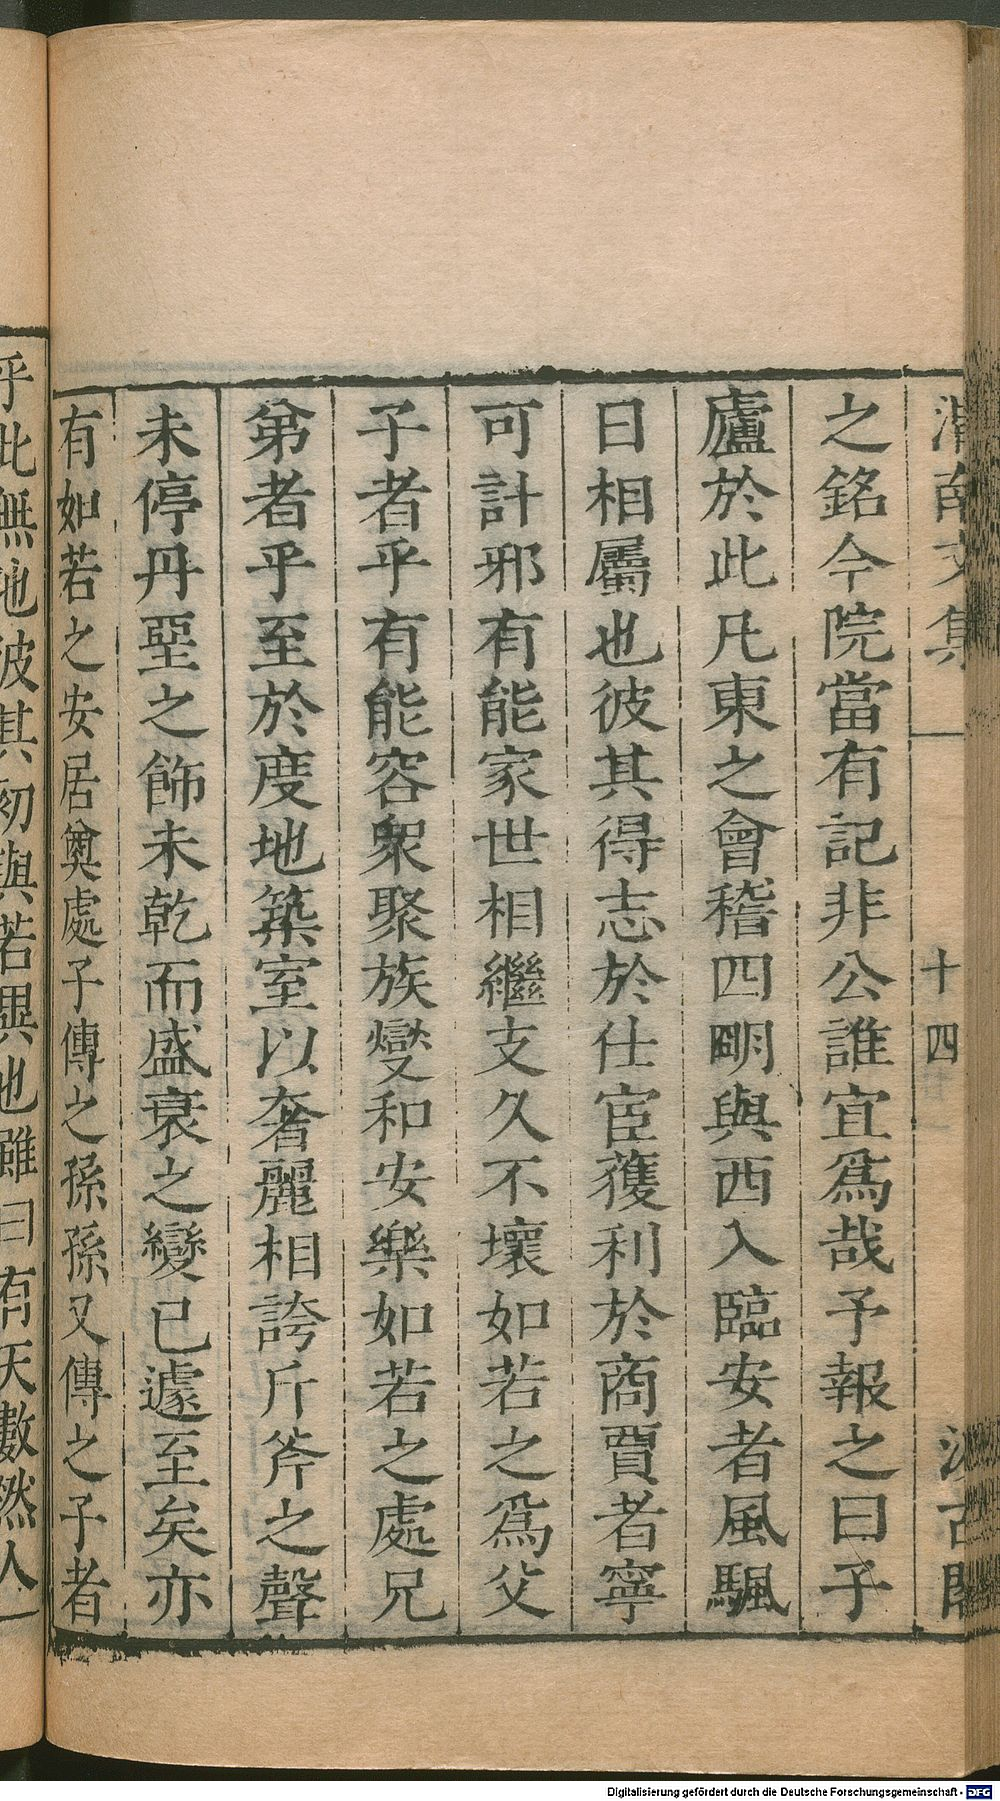 渭南文集 十四 汲古閣
之銘今院當有記非公誰宜爲哉予報之曰子
廬於此凡東之會稽四明與西入臨安者風颿
日相屬也彼其得志於仕宦獲利於商賈者寧
可計邪有能家世相繼支久不壞如若之爲父
子者乎有能容衆聚族燮和安樂如若之處兄
弟者乎至於度地築室以奢麗相誇斤斧之聲
未停丹堊之飾未乾而盛衰之變已遽至矣亦
有如若之安居奠處子傳之孫孫又傳之子者
乎此無他彼其初與若異也雖曰有天數然人
Digitalisierung gefördert durch die Deutsche Forschungsgemeinschaft - DFG